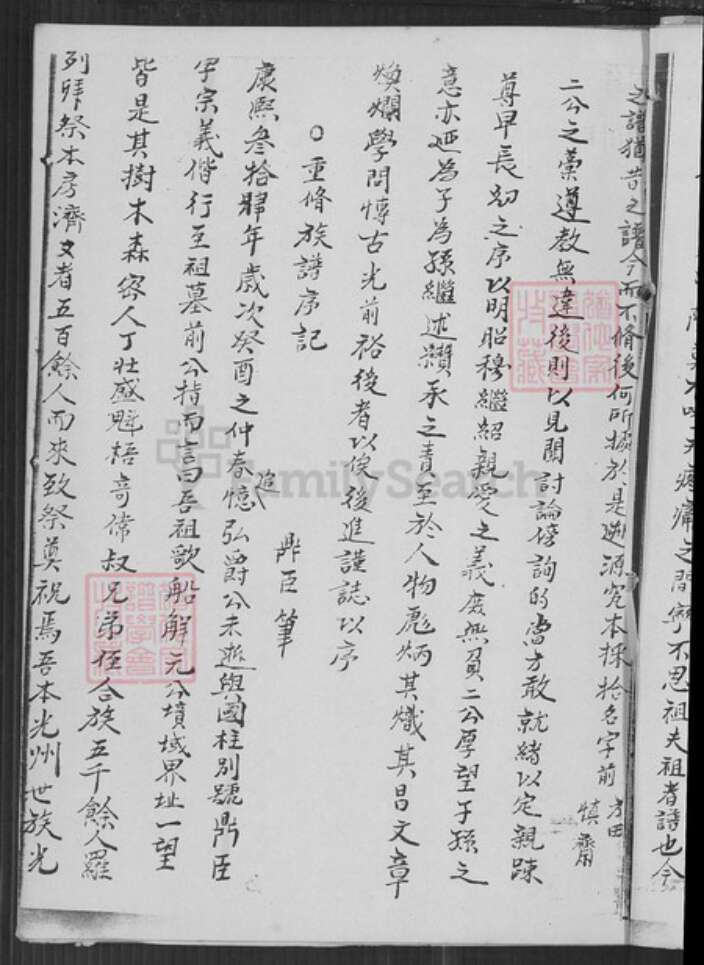 之譜猶昔之譜今而不脩後何所據於是遡源究本採拾名字前
方田
慎齋
二公之藁遵教無違後則以見聞討論搒詢的當方敢就緒以定親疎
尊卑長幼之序以明昭穆繼紹親愛之義庶無負二公厚望子孫之
意亦延為子為孫繼述纘承之責至於人物彪炳其熾其昌文章
煥爛學問博古光前裕後者以俟後進謹誌以序
○重脩族譜序記
鼎臣筆
康熙叁拾肆年歲次癸酉之仲春追憶弘爵公未逝與國柱別號鼎臣
字宗義偕行至祖墓前公指而言曰吾祖歌船解元公墳域界址一望
皆是其樹木森密人丁壯盛魁梧奇偉叔兄弟侄合族五千餘人羅
列拜祭本房濟文者五百餘人而來致祭奠祝焉吾本光州世族光
不思祖夫祖者譜也今
FamilySearch